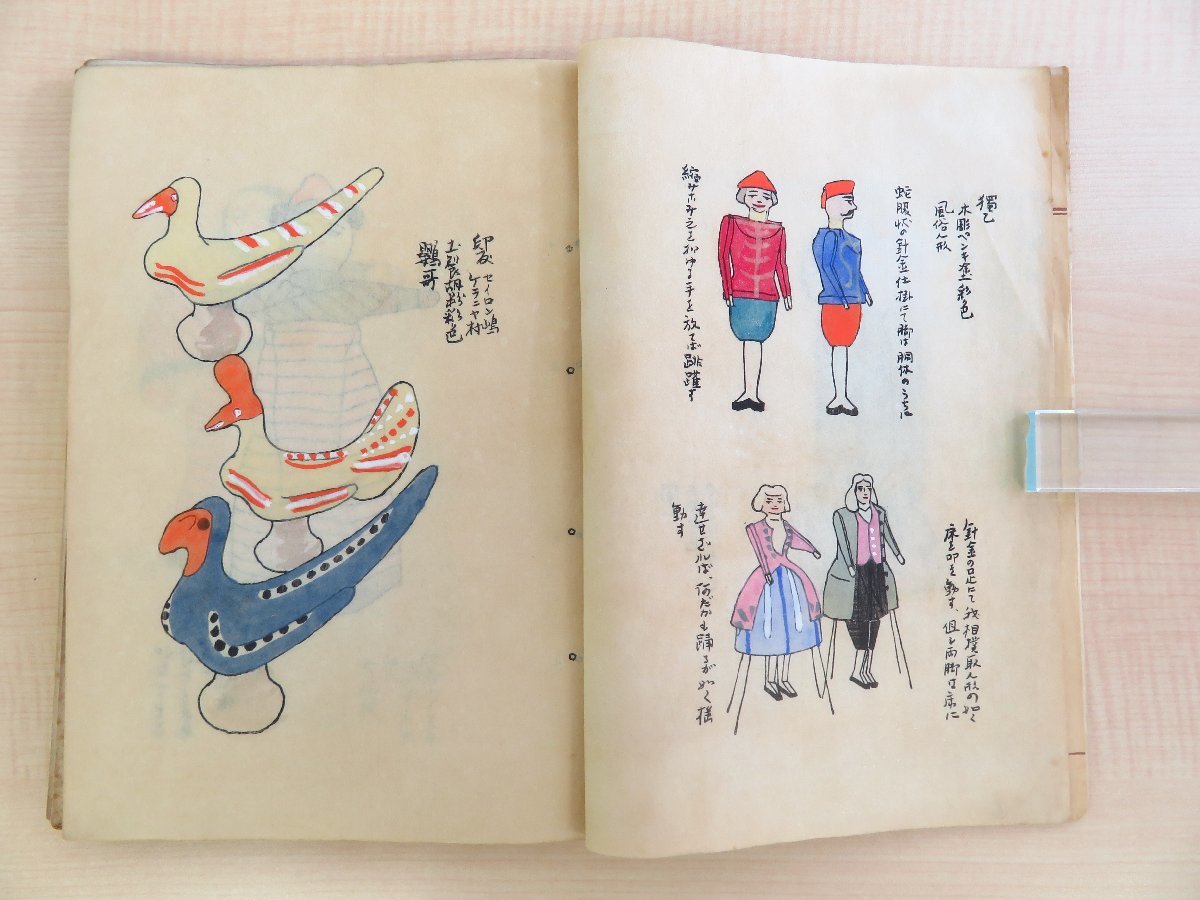 獨乙
木彫ペンキ塗彩色
風俗人形
蛇腹状の針金仕掛にて脚は胴体のうちに
縮サホみ之を抑ゆる手を放てば跳躍す
針金の足にて我相撲取人形の如く
床を叩き動す、但し両脚は床に
達せざれば、何だかも踊るが如く揺
動す
印度 セイロン嶋
ケラニヤ村
土製胡粉彩色
鸚哥